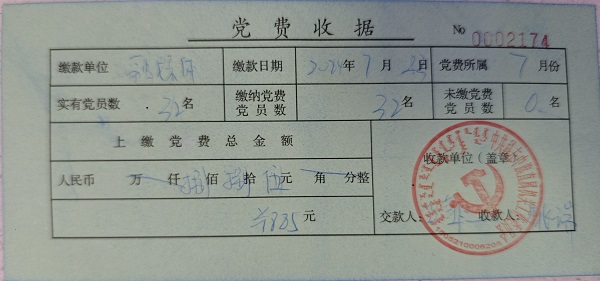 党费收据
No 0002174
缴款单位 缴款日期 2024年7月 日 党费所属 7月份
实有党员数 32名 缴纳党费党员数 32名 未缴党费党员数 0名
上缴党费总金额
收款单位(盖章)
人民币 万 仟 捌佰 捌拾 伍元 角 分整
885元
交款人: 收款人: